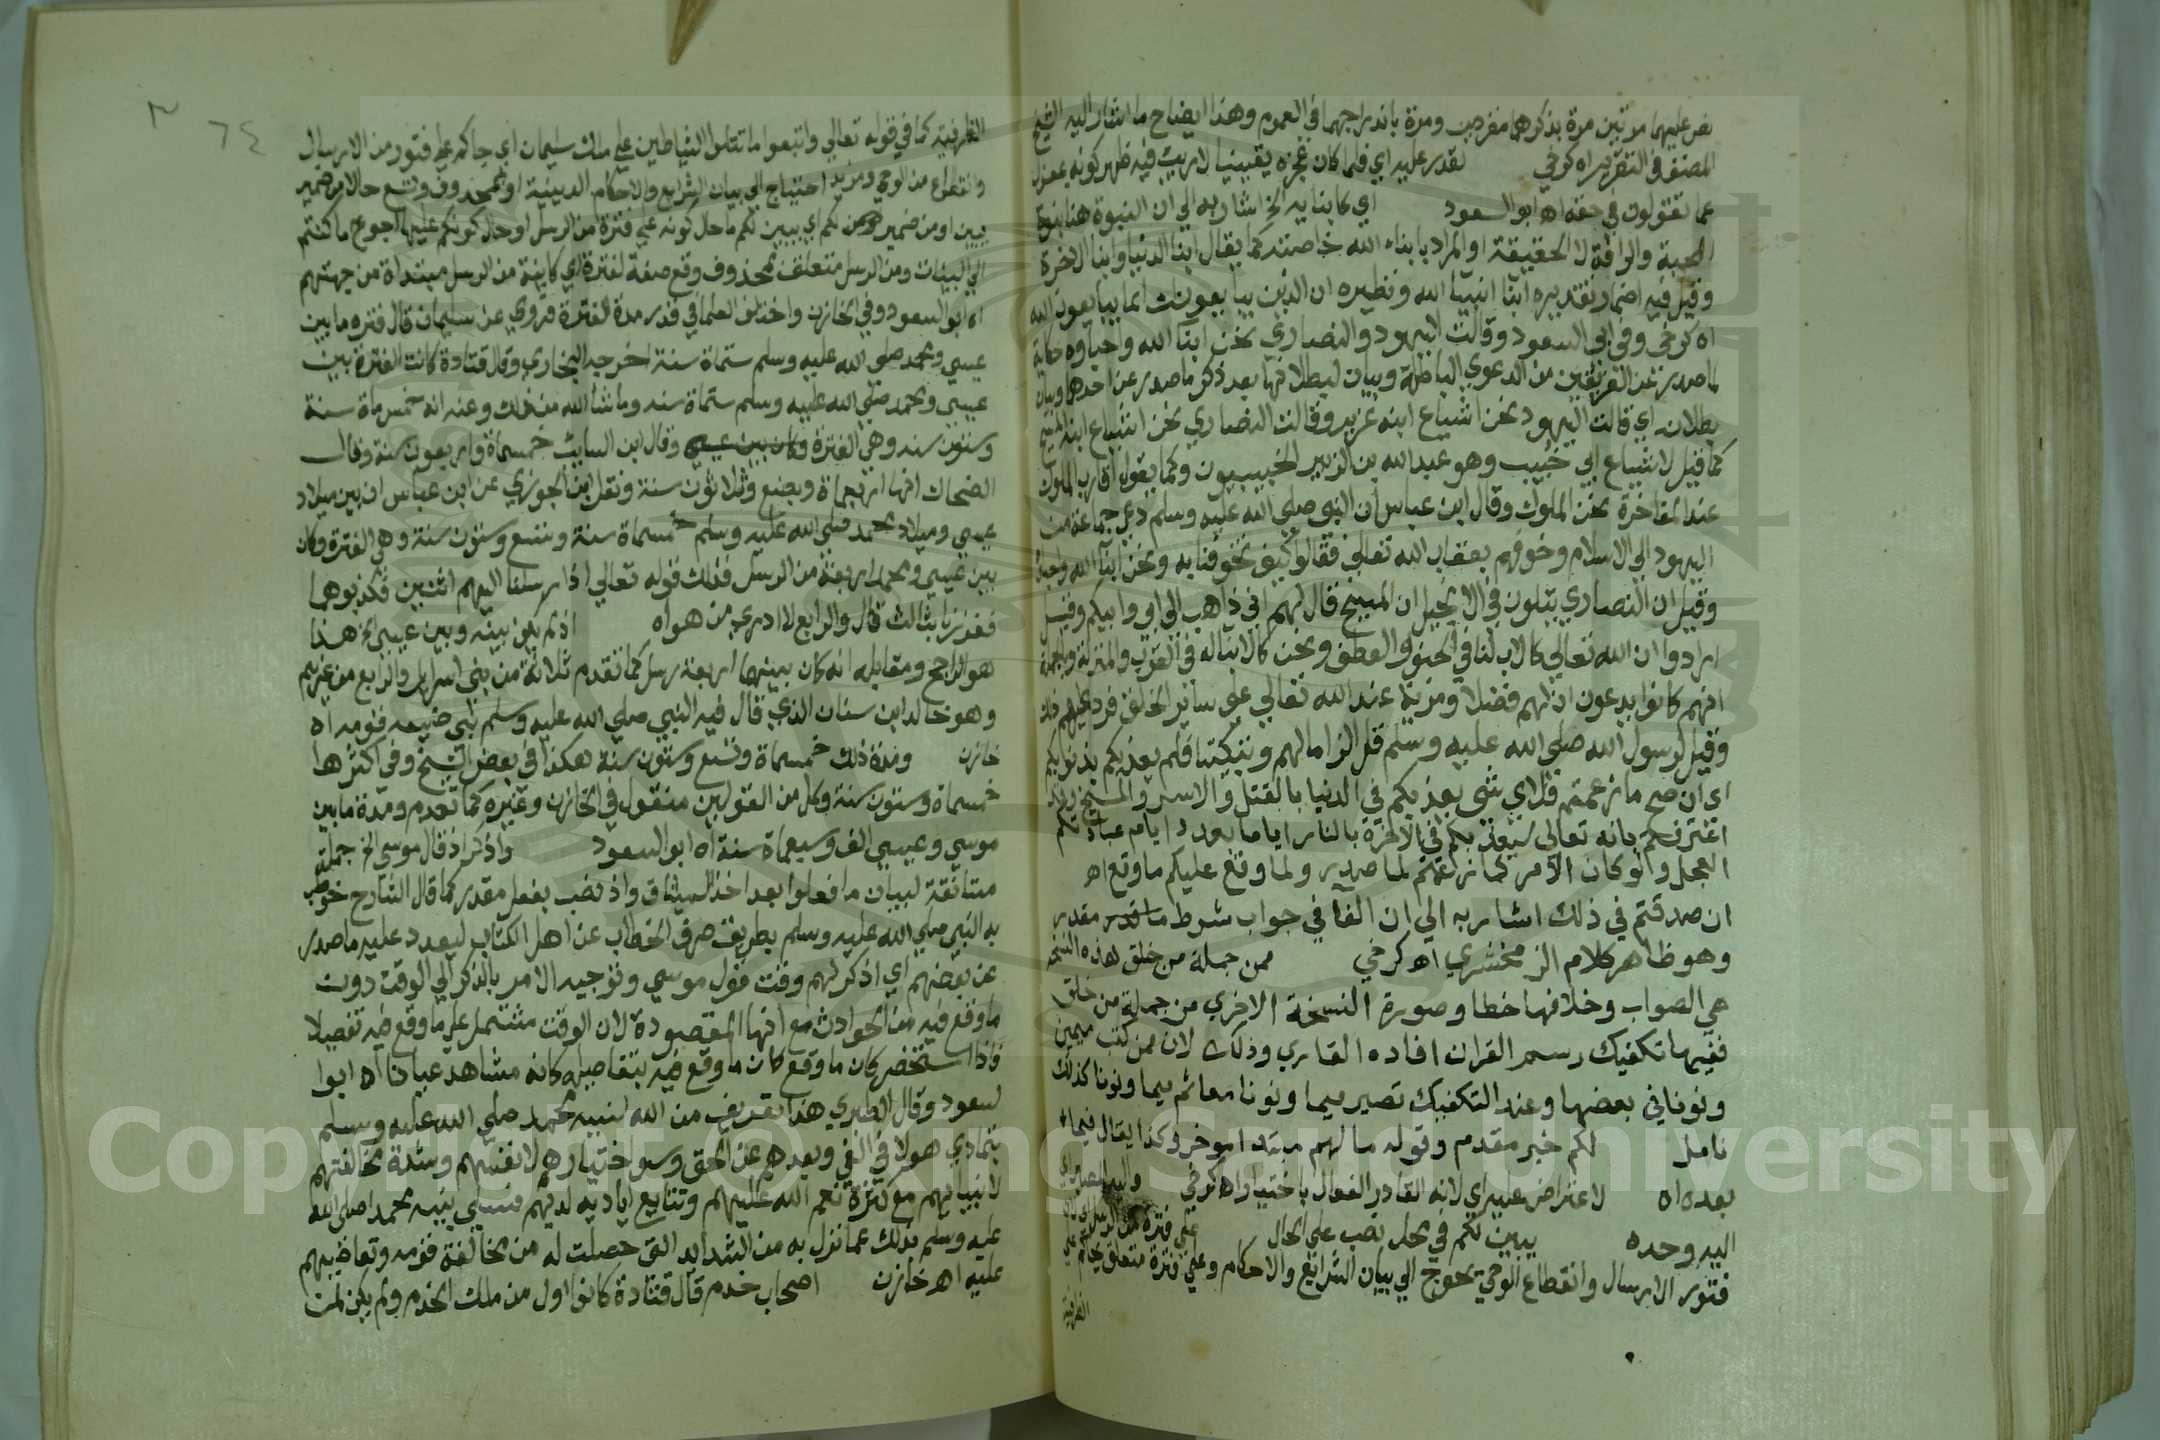 نص عليهما مرتين مرة بذكرهما مفردين ومرة باندراجهما في العموم وهذا ايضاح ما اشار اليه الشيخ
المصنف في التقرير اه كرخي لقدر عليه اي فلما كان عجزه يقينيا لا ريب فيه ظهر كونه بمعزل
عما تقولون في حقه اه ابو السعود اي كابنايه الخ اشار به الي ان النبوة هنا بنوة
المحبة والرافة لا الحقيقة او المراد بابناء الله خاصته كما يقال ابنا الدنيا وابنا الاخرة
وقيل فيه اضمار تقديره ابنا انبيا الله ونظيره ان الذين يبايعونك انما يبايعون الله
اه كرخي وفي ابي السعود وقالت اليهود والنصاري نحن ابنا الله واحباوه حكاية
لما صدر عن الفريقين من الدعوي الباطلة وبيان لبطلانها بعد ذكر ما صدر عن احدهما وبيان
بطلانه اي قالت اليهود نحن اشياع ابنه عزير وقالت النصاري نحن اشياع ابنه المسيح
كما قيل لاشياع ابي خبيب وهو عبد الله بن الزبير الخبيبيون وكما يقول اقارب الملوك
عند المفاخرة نحن الملوك وقال ابن عباس ان النبي صلي الله عليه وسلم دعي جماعة من
اليهود الي الاسلام وخوفهم بعقاب الله تعالي فقالوا كيف تخوفنا به ونحن ابنا الله واحباوه
وقيل ان النصاري يتلون في الانجيل ان المسيح قال لهم اني ذاهب الي ابي وابيكم وقيل
ارادوا ان الله تعالي كالاب لنا في الحنو والعطف ونحن كالابنا له في القرب والمنزلة وبالجملة
انهم كانوا يدعون ان لهم فضلا ومزية عند الله تعالي علي سائر الخلق فرد عليهم ذلك
وقيل لرسول الله صلي الله عليه وسلم قل الزاما لهم وتبكيتا فلم يعذبكم بذنوبكم
اي ان صح ما زعمتم فلاي شي يعذبكم في الدنيا بالقتل والاسر والمسخ وقد
اعترفتم بانه تعالي سيعذبكم في الاخرة بالنار اياما بعدد ايام عبادتكم
العجل ولو كان الامر كما زعمتم لما صدر ولما وقع عليكم ما وقع اه
ان صدقتم في ذلك اشار به الي ان الفا في جواب شرط مقدر
وهو ظاهر كلام الزمخشري اه كرخي ممن جملة من خلق هذه النسخة
هي الصواب وخلافها خطا وصورة النسخة الاخري من جملة من خلق
ففيها تكفيك رسم القران افاده القاري وذلك لان ممن كتب ميمين
ونونا في بعضها وعند التكفيك تصير ميما ونونا ثم ميما ونونا كذلك
تامل لكم خبر مقدم وقوله ما لهم مبتدا موخر وكذا يقال فيما
بعده اه لا اعتراض عليه اي لانه القادر الفعال باختيار اه كرخي واليه المصير اي
اليه وحده يبين لكم في محل نصب علي الحال علي فترة من الرسل
فتور الارسال وانقطاع الوحي يحوج الي بيان الشرائع والاحكام وعلي فترة متعلق بجاكم علي
الظرفية
٦٤
الظرفية كما في قوله تعالي واتبعوا ما تتلوا الشياطين علي ملك سليمان اي جاكم علي فتور من الارسال
وانقطاع من الوحي ومزيد احتياج الي بيان الشرايع والاحكام الدينية او بمحذوف وقع حالا من ضمير
يبين او من ضمير لكم اي يبين لكم ما حال كونه علي فترة من الرسل او حال كونكم عليها احوج ما كنتم
الي البينات ومن الرسل متعلق بمحذوف وقع صفة لفترة اي كاينة من الرسل مبتداة من جهتهم
اه ابو السعود وفي الخازن واختلف العلما في قدر مدة الفترة فروي عن سليمان قال فترة ما بين
عيسي ومحمد صلي الله عليه وسلم ستماة سنة اخرجه البخاري وقال قتادة كانت الفترة بين
عيسي ومحمد صلي الله عليه وسلم ستماة سنه وما شا الله من ذلك وعنه انه خمس ماة سنة
وستون سنه وهي الفترة وكان بين عيسي وقال ابن السايب خمسماة واربعون سنة وقال
الضحاك انها اربعماة وبضع وثلاثون سنة ونقل ابن الجوزي عن ابن عباس ان بين ميلاد
عيسي وميلاد محمد صلي الله عليه وسلم خمسماة سنة وتسع وستون سنة وهي الفترة وكان
بين عيسي ومحمد اربعة من الرسل فذلك قوله تعالي اذ ارسلنا اليهم اثنين فكذبوهما
فعززنا بثالث قال والرابع لا ادري من هو اه اذ لم يكن بينه وبين عيسي الخ هذا
هو الراجح ومقابله انه كان بينهما اربعة رسل كما تقدم ثلاثة من بني اسرايل والرابع من غيرهم
وهو خالد ابن سنان الذي قال فيه النبي صلي الله عليه وسلم نبي ضيعه قومه اه
خازن ومدة ذلك خمسماة وتسع وستون سنة هكذا في بعض النسخ وفي اكثرها
خمسماة وستون سنة وكل من القولين منقول في الخازن وغيره كما تقدم ومدة ما بين
موسي وعيسي الف وسبعماة سنة اه ابو السعود واذكر اذ قال موسي الخ جملة
مستانفة لبيان ما فعلوا بعد اخذ الميثاق واذ نصب بفعل مقدر كما قال الشارح خوطب
به النبي صلي الله عليه وسلم بطريق صرف الخطاب عن اهل الكتاب ليعدد عليه ما صدر
عن بعضهم اي اذكر لهم وقت قول موسي وتوجيه الامر بالذكر الي الوقت دون
ما وقع فيه من الحوادث مع انها المقصودة لان الوقت مشتمل علي ما وقع فيه تفصيلا
فاذا استحضر كان ما وقع كان ما وقع فيه بتفاصيله كانه مشاهد عيانا اه ابوا
لسعود وقال الطبري هذا تعريف من الله لنبيه محمد صلي الله عليه وسلم
بتمادي هولا في الغي وبعدهم عن الحق وسو اختيارهم لانفسهم وشدة مخالفتهم
لانبيايهم مع كثرة نعم الله عليهم وتتابع اياديه لديهم فسلي نبيه محمدا صلي الله
عليه وسلم بذلك عما نزل به من الشدايد التي حصلت له من مخالفة قومه وتعاظمهم
عليه اه خازن اصحاب خدم قال قتادة كانوا اول من ملك الخدم ولم يكن لمن
Copyright © King Saud University